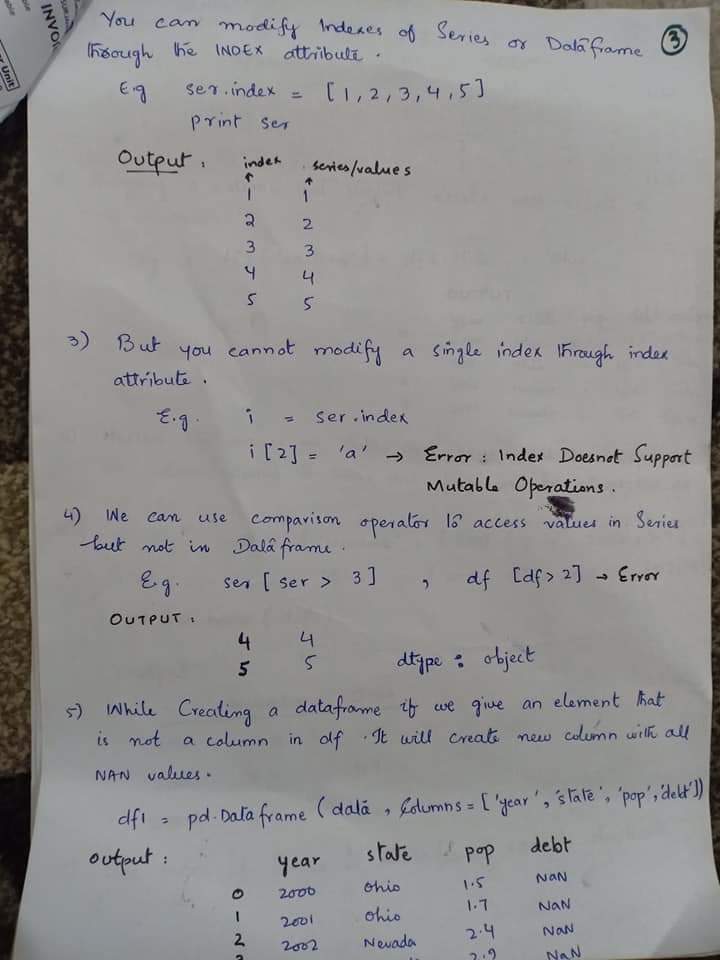 INVO
r Unit
③
You can modify Indexes of Series or Dataframe
through the INDEX attribute.
E.g ser.index = [1,2,3,4,5]
print ser
Output: index series/values
1 1
2 2
3 3
4 4
5 5
3) But you cannot modify a single index through index
attribute.
E.g. i = ser.index
i[2] = 'a' → Error: Index Doesnot Support
Mutable Operations.
4) We can use comparison operator to access values in Series
but not in Dataframe.
E.g. ser [ser > 3] , df [df>2] → Error
OUTPUT:
4 4
5 5 dtype: object
5) While Creating a dataframe if we give an element that
is not a column in df. It will create new column with all
NAN values.
df1 = pd.Dataframe (data, Columns=['year','state','pop','debt'])
Output:
year state pop debt
0 2000 Ohio 1.5 NaN
1 2001 Ohio 1.7 NaN
2 2002 Nevada 2.4 NaN
2.9 NaN